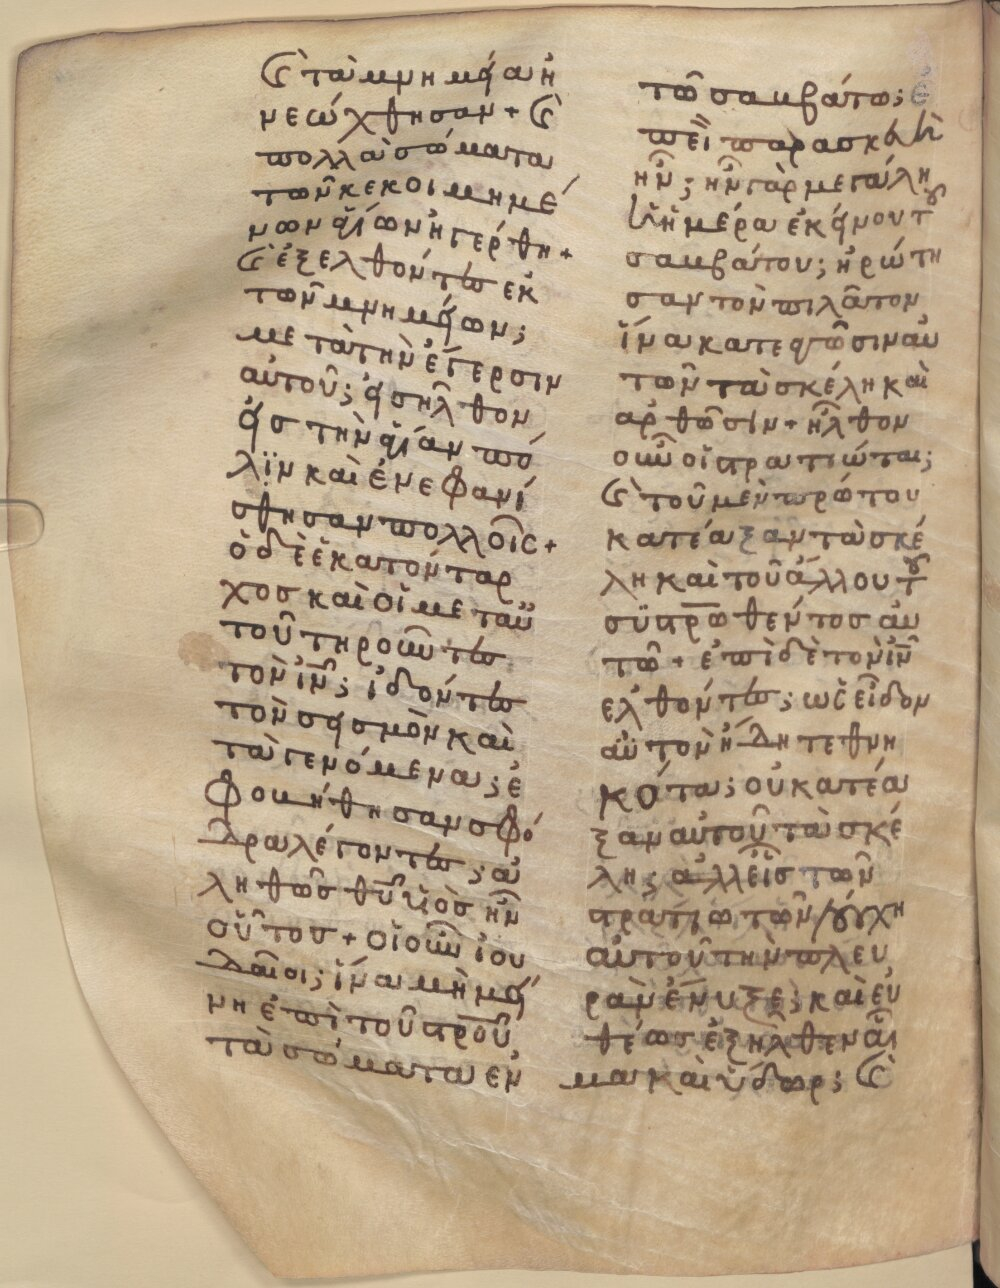 Ϗ τὰ μνημεία ἠ
νεώχθησαν + Ϗ
πολλὰ σώματα
τῶν κεκοιμημέ
νων ἁγίων ἠγέρθη +
Ϗ ἐξελθόντες ἐκ
τῶν μνημείων ;
μετὰ τὴν ἔγερσιν
αὐτοῦ ; εἰσῆλθον
εἰς τὴν ἁγίαν πό
λϊν καὶ ἐνεφανί
σθησαν πολλοῖς +
ὁ δὲ ἑκατόνταρ
χος καὶ οἱ μετ αὐ
τοῦ τηροῦντες
τὸν ἰν ; ἰδόντες
τὸν σεισμὸν καὶ
τὰ γενόμενα ; ἐ
φοβήθησαν σφό
δρα λέγοντες ; ἀ
ληθῶς θυ υἱὸς ἦν
οὗτος + οἱ οὖν ἰου
δαῖοι ; ἵνα μὴ μεί
νη ἐπὶ τοῦ στρου
τὰ σώματα ἐν
τῶ σαμβάτω ; ἐ
πεὶ παρασκευὴ
ἦν ; ἦν γὰρ μεγάλη
ἡ ἡμέρα ἐκείνου τοῦ
σαμβάτου ; ἠρώτη
σαν τὸν πιλᾶτον
ἵνα κατεαγῶσιν αὐ
τῶν τὰ σκέλη καὶ
ἀρθῶσιν + ἦλθον
οὖν οἱ στρατιῶται ;
Ϗ τοῦ μὲν πρώτου
κατέαξαν τὰ σκέ
λη καὶ τοῦ ἄλλου τοῦ
συστρωθέντος αὐ
τῶ + ἐπὶ δὲ τὸν ἰν
ἐλθόντες ; ὡς εἶδον
αὐτὸν ἤδη τεθνη
κότα ; οὐ κατέα
ξαν αὐτοῦ τὰ σκέ
λη ; ἀλλ εἷς τῶν
στρατιωτῶν λόγχη
αὐτοῦ τὴν πλευ
ρὰν ἔνυξε ; καὶ εὐ
θέως ἐξῆλθεν αἷ
μα καὶ ὕδωρ ; Ϗ